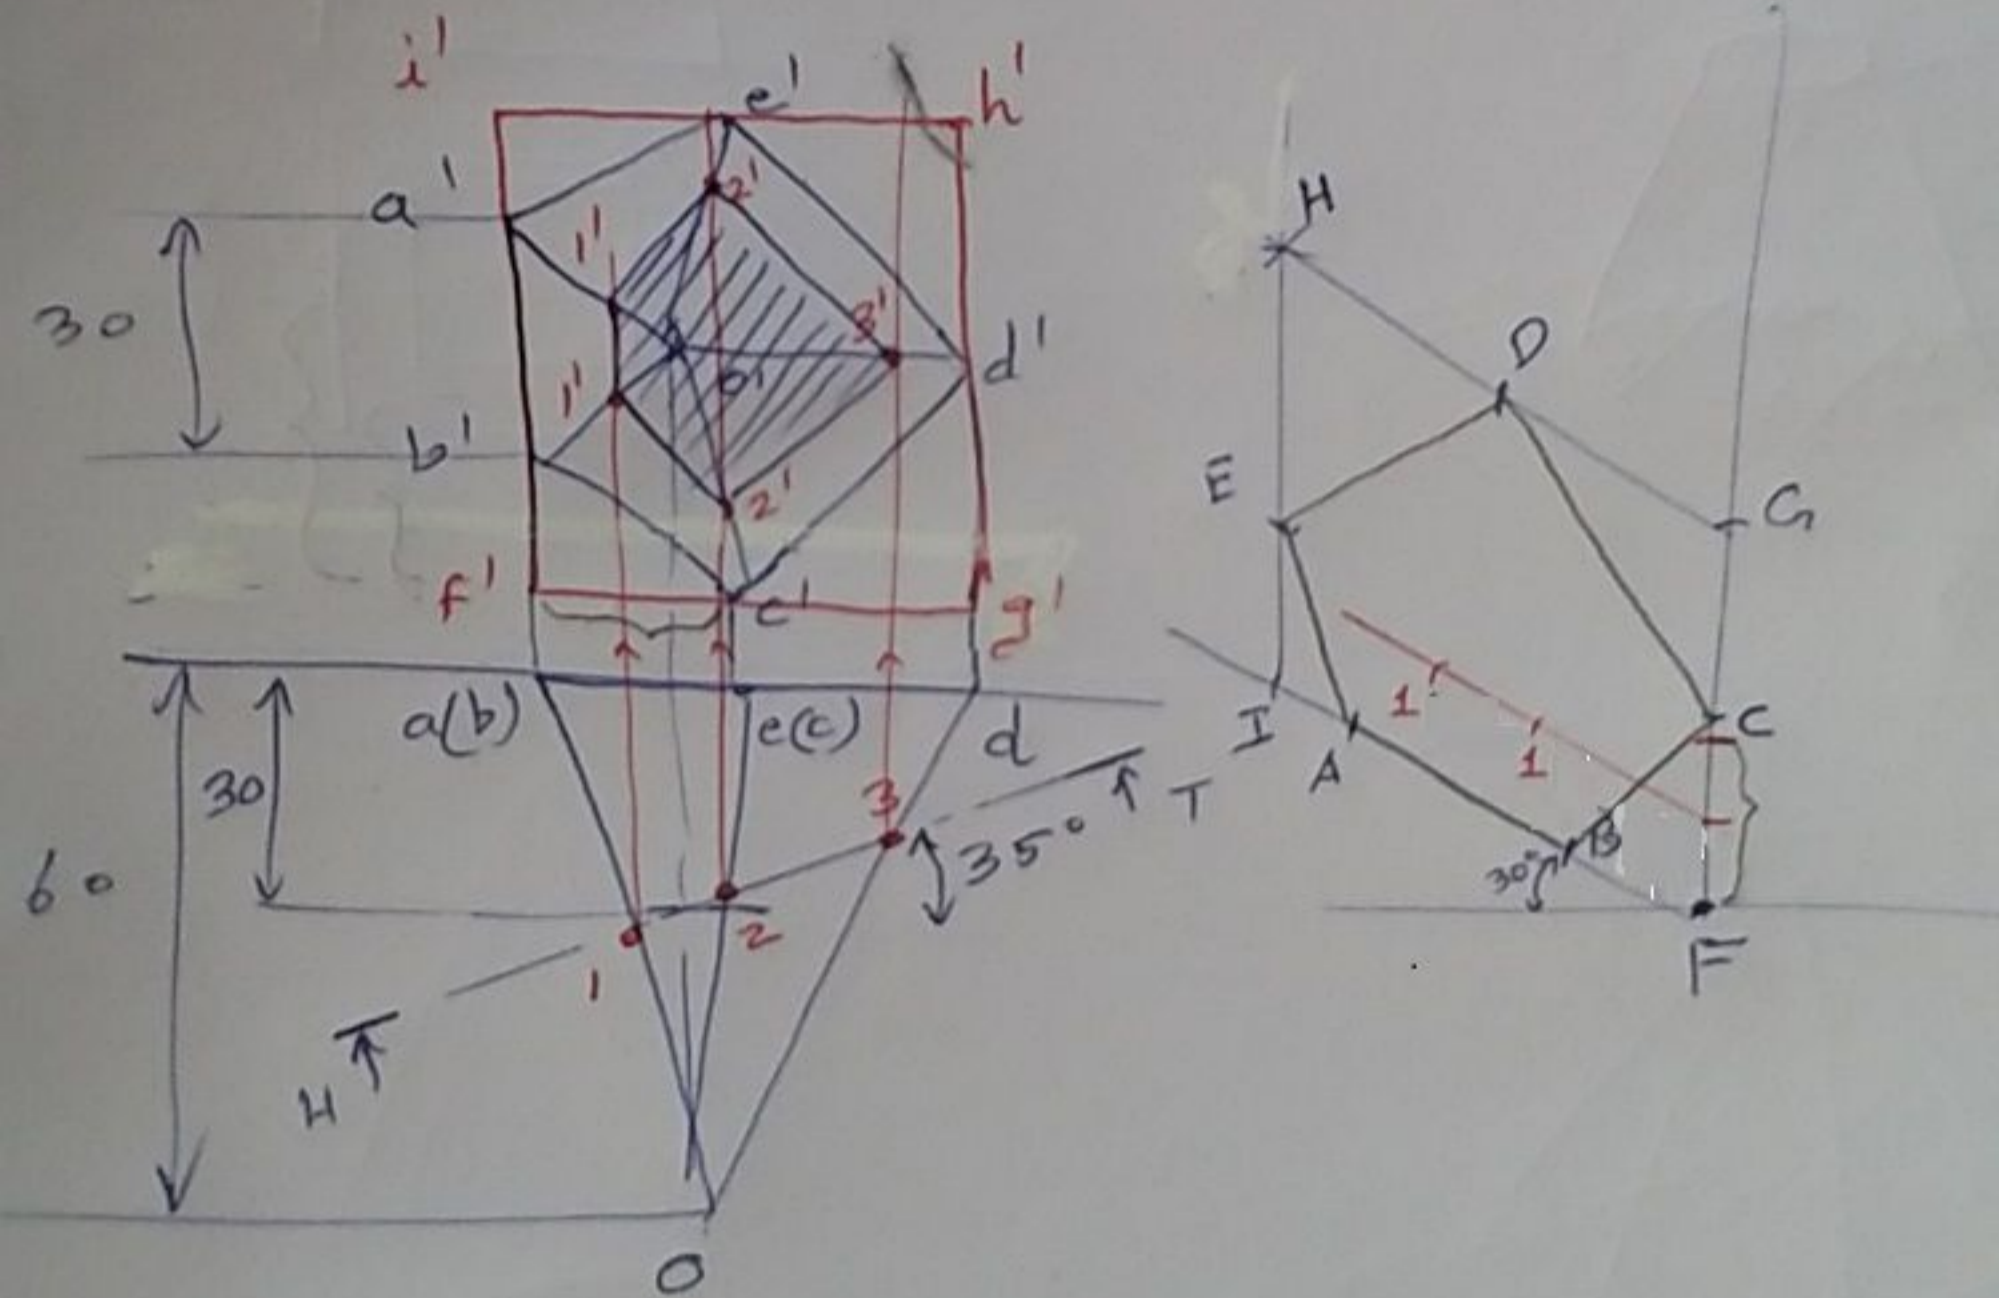 i'
e'
h'
a'
2'
1'
30
3'
o'
d'
1'
b'
2'
f'
c'
g'
a(b)
e(c)
d
30
3
T
35°
60
2
1
H
O
H
D
E
G
1
C
I
1
A
B
30°
F